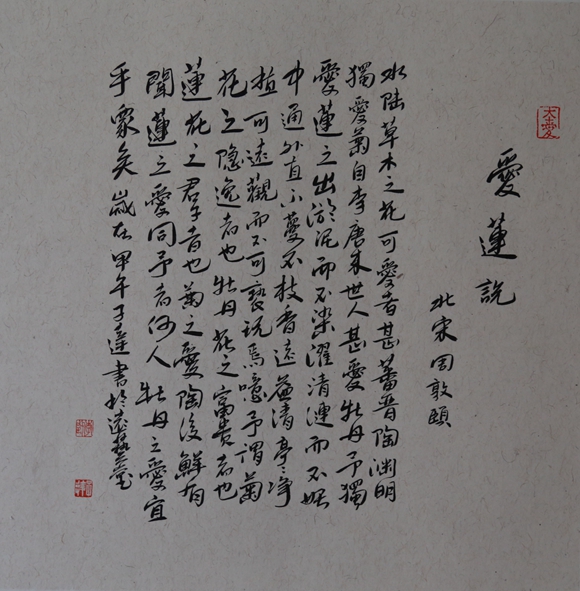 大愛
愛蓮說
北宋周敦頤
水陆草木之花可愛者甚蕃晋陶渊明
獨愛菊自李唐来世人甚愛牡丹予獨
愛蓮之出淤泥而不染濯清漣而不妖
中通外直不蔓不枝香遠益清亭〻净
植可遠觀而不可褻玩焉噫予謂菊
花之隐逸者也牡丹花之富贵者也
蓮花之君子者也菊之愛陶後鮮有
聞蓮之愛同予者何人牡丹之愛宜
乎衆矣歲在甲午子書於遠藝